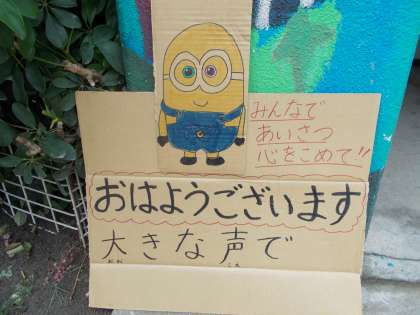 みんなで
あいさつ
心をこめて!!
おはようございます
大きな声で